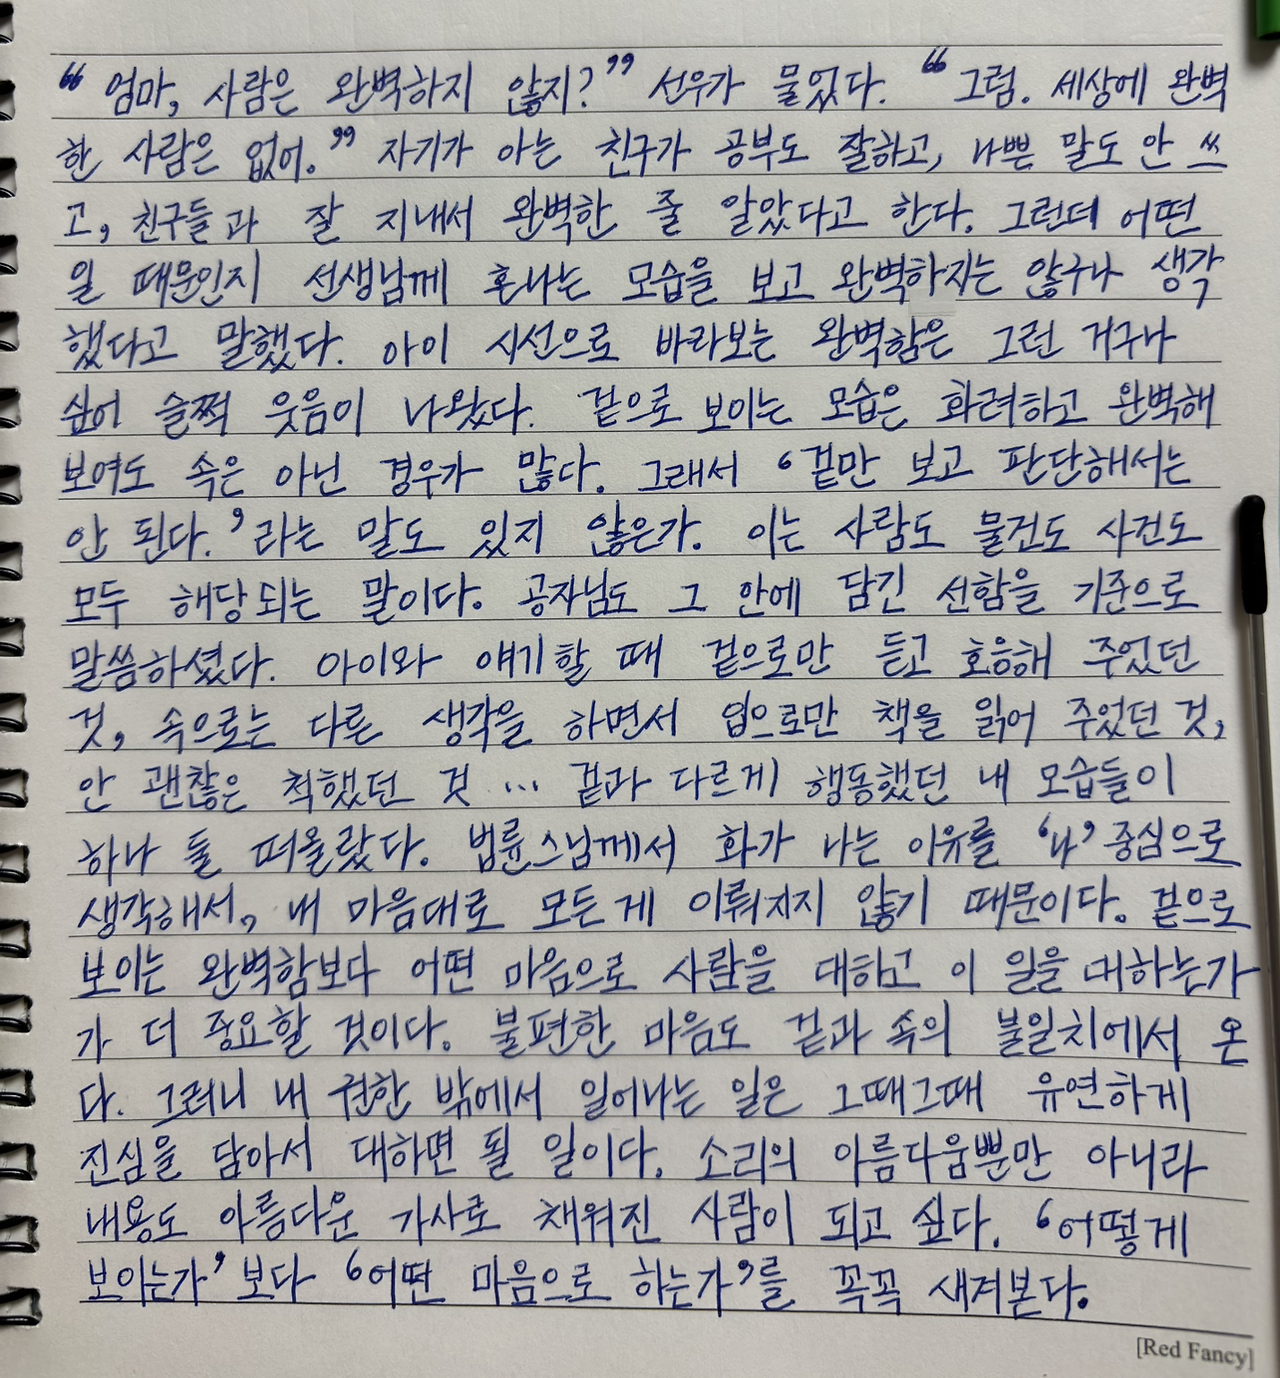 “엄마, 사람은 완벽하지 않지?” 선우가 물었다. “그럼. 세상에 완벽
한 사람은 없어.” 자기가 아는 친구가 공부도 잘하고, 나쁜 말도 안 쓰
고, 친구들과 잘 지내서 완벽한 줄 알았다고 한다. 그런데 어떤
일 때문인지 선생님께 혼나는 모습을 보고 완벽하지는 않구나 생각
했다고 말했다. 아이 시선으로 바라보는 완벽함은 그런 거구나
싶어 슬쩍 웃음이 나왔다. 겉으로 보이는 모습은 화려하고 완벽해
보여도 속은 아닌 경우가 많다. 그래서 ‘겉만 보고 판단해서는
안 된다.’라는 말도 있지 않은가. 이는 사람도 물건도 사건도
모두 해당되는 말이다. 공자님도 그 안에 담긴 선함을 기준으로
말씀하셨다. 아이와 얘기할 때 겉으로만 듣고 호응해 주었던
것, 속으로는 다른 생각을 하면서 입으로만 책을 읽어 주었던 것,
안 괜찮은 척했던 것 … 겉과 다르게 행동했던 내 모습들이
하나 둘 떠올랐다. 법륜스님께서 화가 나는 이유를 ‘나’ 중심으로
생각해서, 내 마음대로 모든 게 이뤄지지 않기 때문이다. 겉으로
보이는 완벽함보다 어떤 마음으로 사람을 대하고 이 일을 대하는가
가 더 중요할 것이다. 불편한 마음도 겉과 속의 불일치에서 온
다. 그러니 내 권한 밖에서 일어나는 일은 그때그때 유연하게
진심을 담아서 대하면 될 일이다. 소리의 아름다움뿐만 아니라
내용도 아름다운 가사로 채워진 사람이 되고 싶다. ‘어떻게
보이는가’ 보다 ‘어떤 마음으로 하는가’를 꼭꼭 새겨본다.
[Red Fancy]